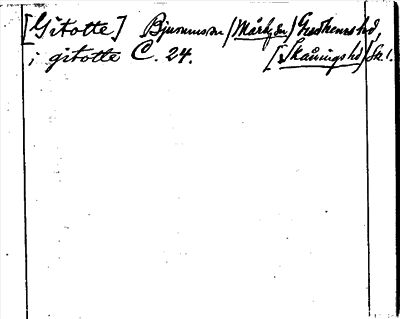 [Gitotte] Bjurum sn (Marka sn) Gudhems hd,
i gitotte C. 24. [Skånings hd] Sk. l.